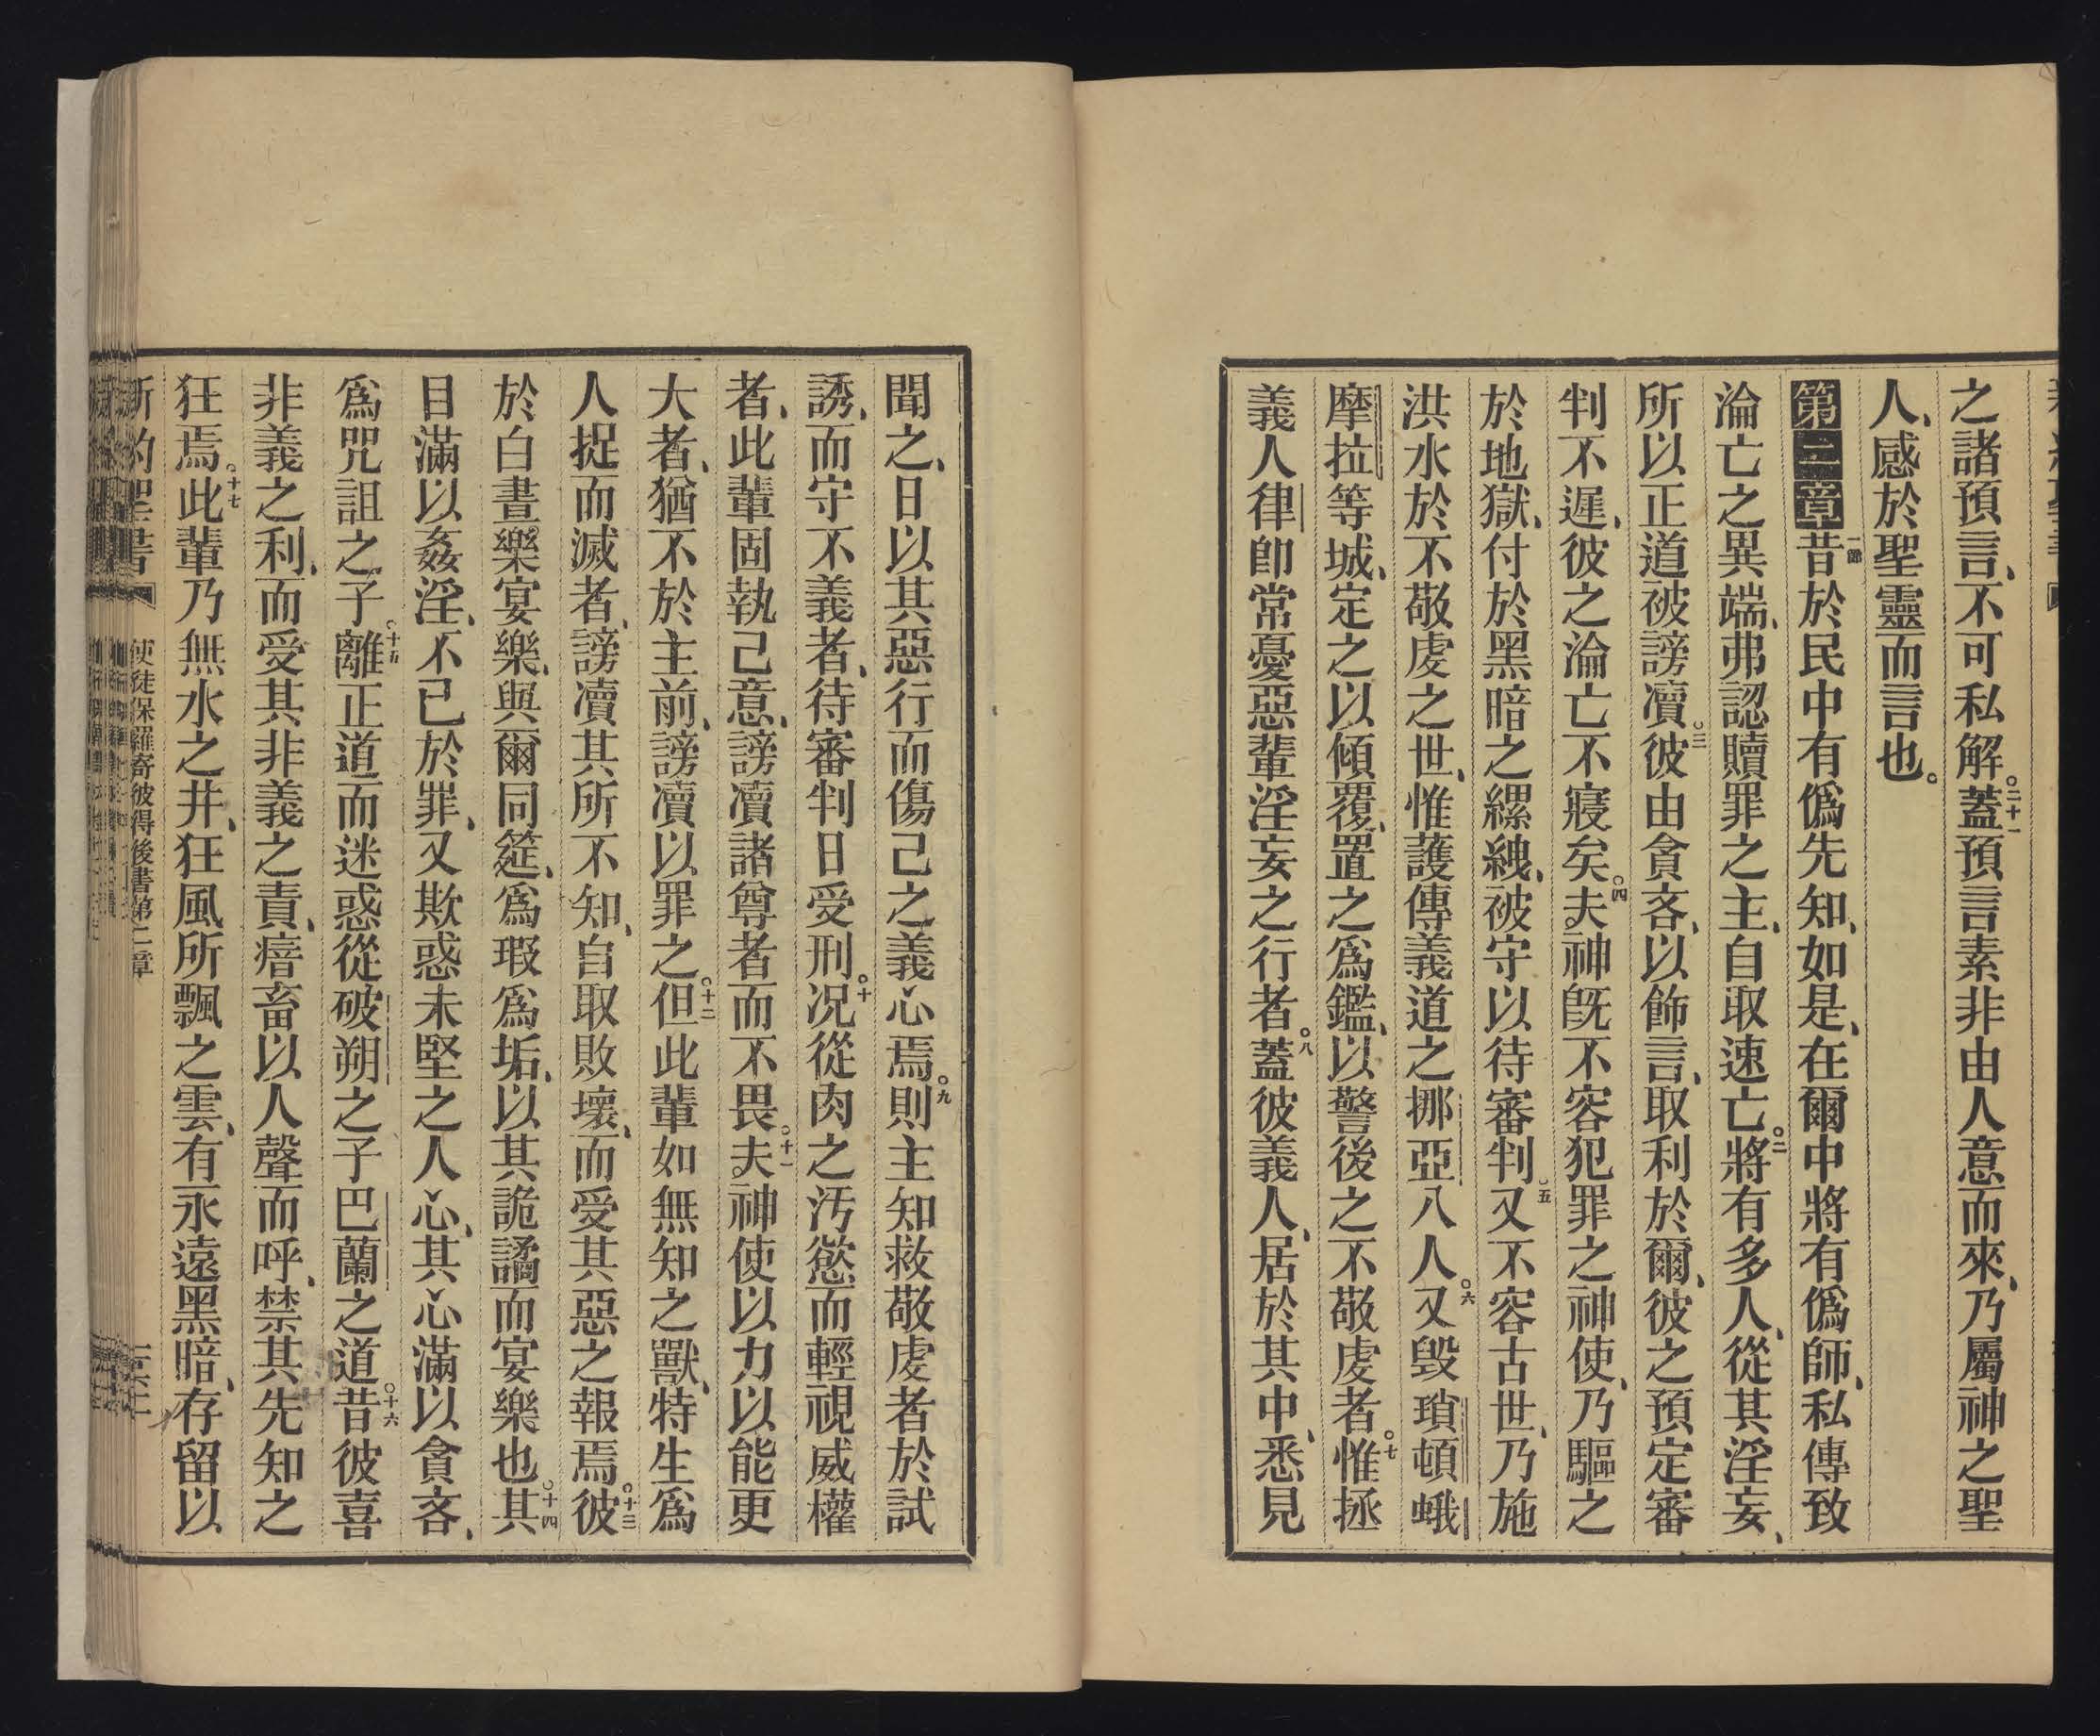 之諸預言、不可私解。二十一蓋預言素非由人意而來、乃屬神之聖
人、感於聖靈而言也。
第二章一節昔於民中有僞先知、如是、在爾中將有僞師、私傳致
淪亡之異端、弗認贖罪之主、自取速亡。二將有多人、從其淫妄、
所以正道被謗凟。三彼由貪吝、以飾言、取利於爾、彼之預定審
判不遲、彼之淪亡不寢矣。四夫神旣不容犯罪之神使、乃驅之
於地獄、付於黑暗之縲絏、被守以待審判。五又不容古世、乃施
洪水於不敬虔之世、惟護傳義道之挪亞八人。六又毀瑣頓蛾
摩拉等城、定之以傾覆、置之爲鑑、以警後之不敬虔者。七惟拯
義人律卽常憂惡輩淫妄之行者。八蓋彼義人、居於其中、悉見
聞之、日以其惡行而傷己之義心焉。九則主知救敬虔者於試
誘、而守不義者、待審判日受刑。十况從肉之汚慾而輕視威權
者、此輩固執己意、謗凟諸尊者而不畏。十一夫神使以力以能更
大者、猶不於主前、謗凟以罪之。十二但此輩如無知之獸、特生爲
人捉而滅者、謗凟其所不知、自取敗壞、而受其惡之報焉。十三彼
於白晝樂宴樂、與爾同筵、爲瑕爲垢、以其詭譎而宴樂也。十四其
目滿以姦淫、不已於罪、又欺惑未堅之人心、其心滿以貪吝、
爲咒詛之子。十五離正道而迷惑從破朔之子巴蘭之道。十六昔彼喜
非義之利、而受其非義之責、瘖畜以人聲而呼、禁其先知之
狂焉。十七此輩乃無水之井、狂風所飄之雲、有永遠黑暗、存留以
新約聖書 使徒保羅寄彼得後書第二章